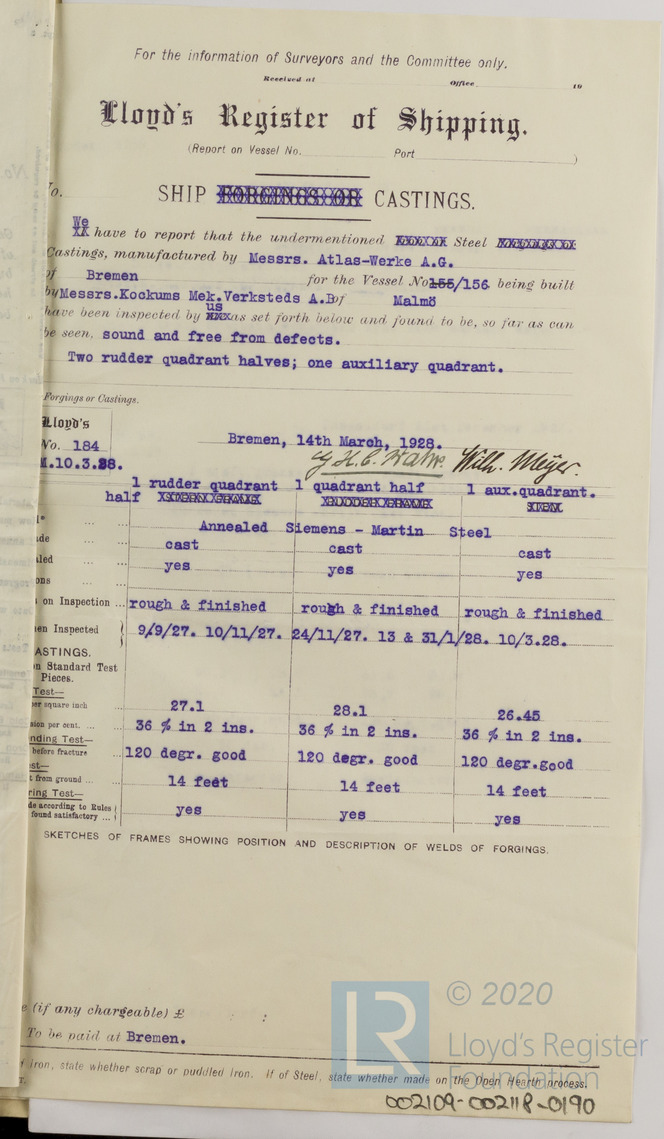 For the information of Surveyors and the Committee only.
Received at Office 19
Lloyd's Register of Shipping.
(Report on Vessel No. Port )
No. SHIP FORGINGS OR CASTINGS.
We
have to report that the undermentioned Steel
Castings, manufactured by Messrs. Atlas-Werke A.G.
of Bremen for the Vessel No 155/156 being built
by Messrs.Kockums Mek.Verksteds A.B of Malmö
us
have been inspected by as set forth below and found to be, so far as can
be seen, sound and free from defects.
Two rudder quadrant halves; one auxiliary quadrant.
Forgings or Castings.
Lloyd's
No. 184
M.10.3.28.
Bremen, 14th March, 1928.
Wilh. Meyer.
1 rudder quadrant 1 quadrant half 1 aux.quadrant.
half
Annealed Siemens - Martin Steel
cast cast cast
yes yes yes
on Inspection ... rough & finished rough & finished rough & finished
en Inspected 9/9/27. 10/11/27. 24/11/27. 13 & 31/1/28. 10/3.28.
ASTINGS.
n Standard Test
Pieces.
Test—
er square inch 27.1 28.1 26.45
sion per cent. ... 36 % in 2 ins. 36 % in 2 ins. 36 % in 2 ins.
nding Test—
before fracture 120 degr. good 120 degr. good 120 degr.good
st—
t from ground ... 14 feet 14 feet 14 feet
ring Test—
de according to Rules
found satisfactory ... yes yes yes
SKETCHES OF FRAMES SHOWING POSITION AND DESCRIPTION OF WELDS OF FORGINGS.
e (if any chargeable) £ :
To be paid at Bremen.
f Iron, state whether scrap or puddled Iron. If of Steel, state whether made on the Open Hearth process.
LR
© 2020
Lloyd's Register
Foundation
002109-002118-0190